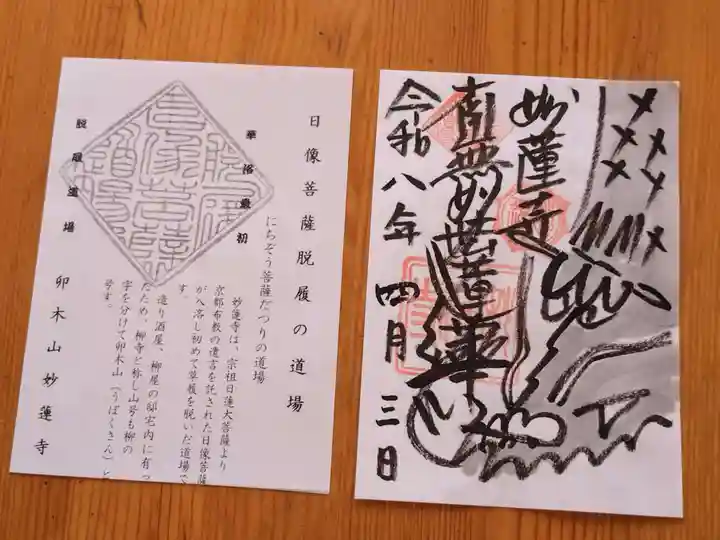 日像菩薩脱履の道場
にちぞう菩薩だつりの道場
妙蓮寺は、宗祖日蓮大菩薩より
京都布教の遺言を託された日像菩薩
が入洛し初めて草履を脱いだ道場で
す。
造り酒屋、柳屋の邸宅内に有っ
たため、柳寺と称し山号も柳の
字を分けて卯木山(うぼくさん)と
号す。
華洛最初
脱履道場
卯木山妙蓮寺
妙蓮寺
南無妙法蓮華
令和八年四月三日